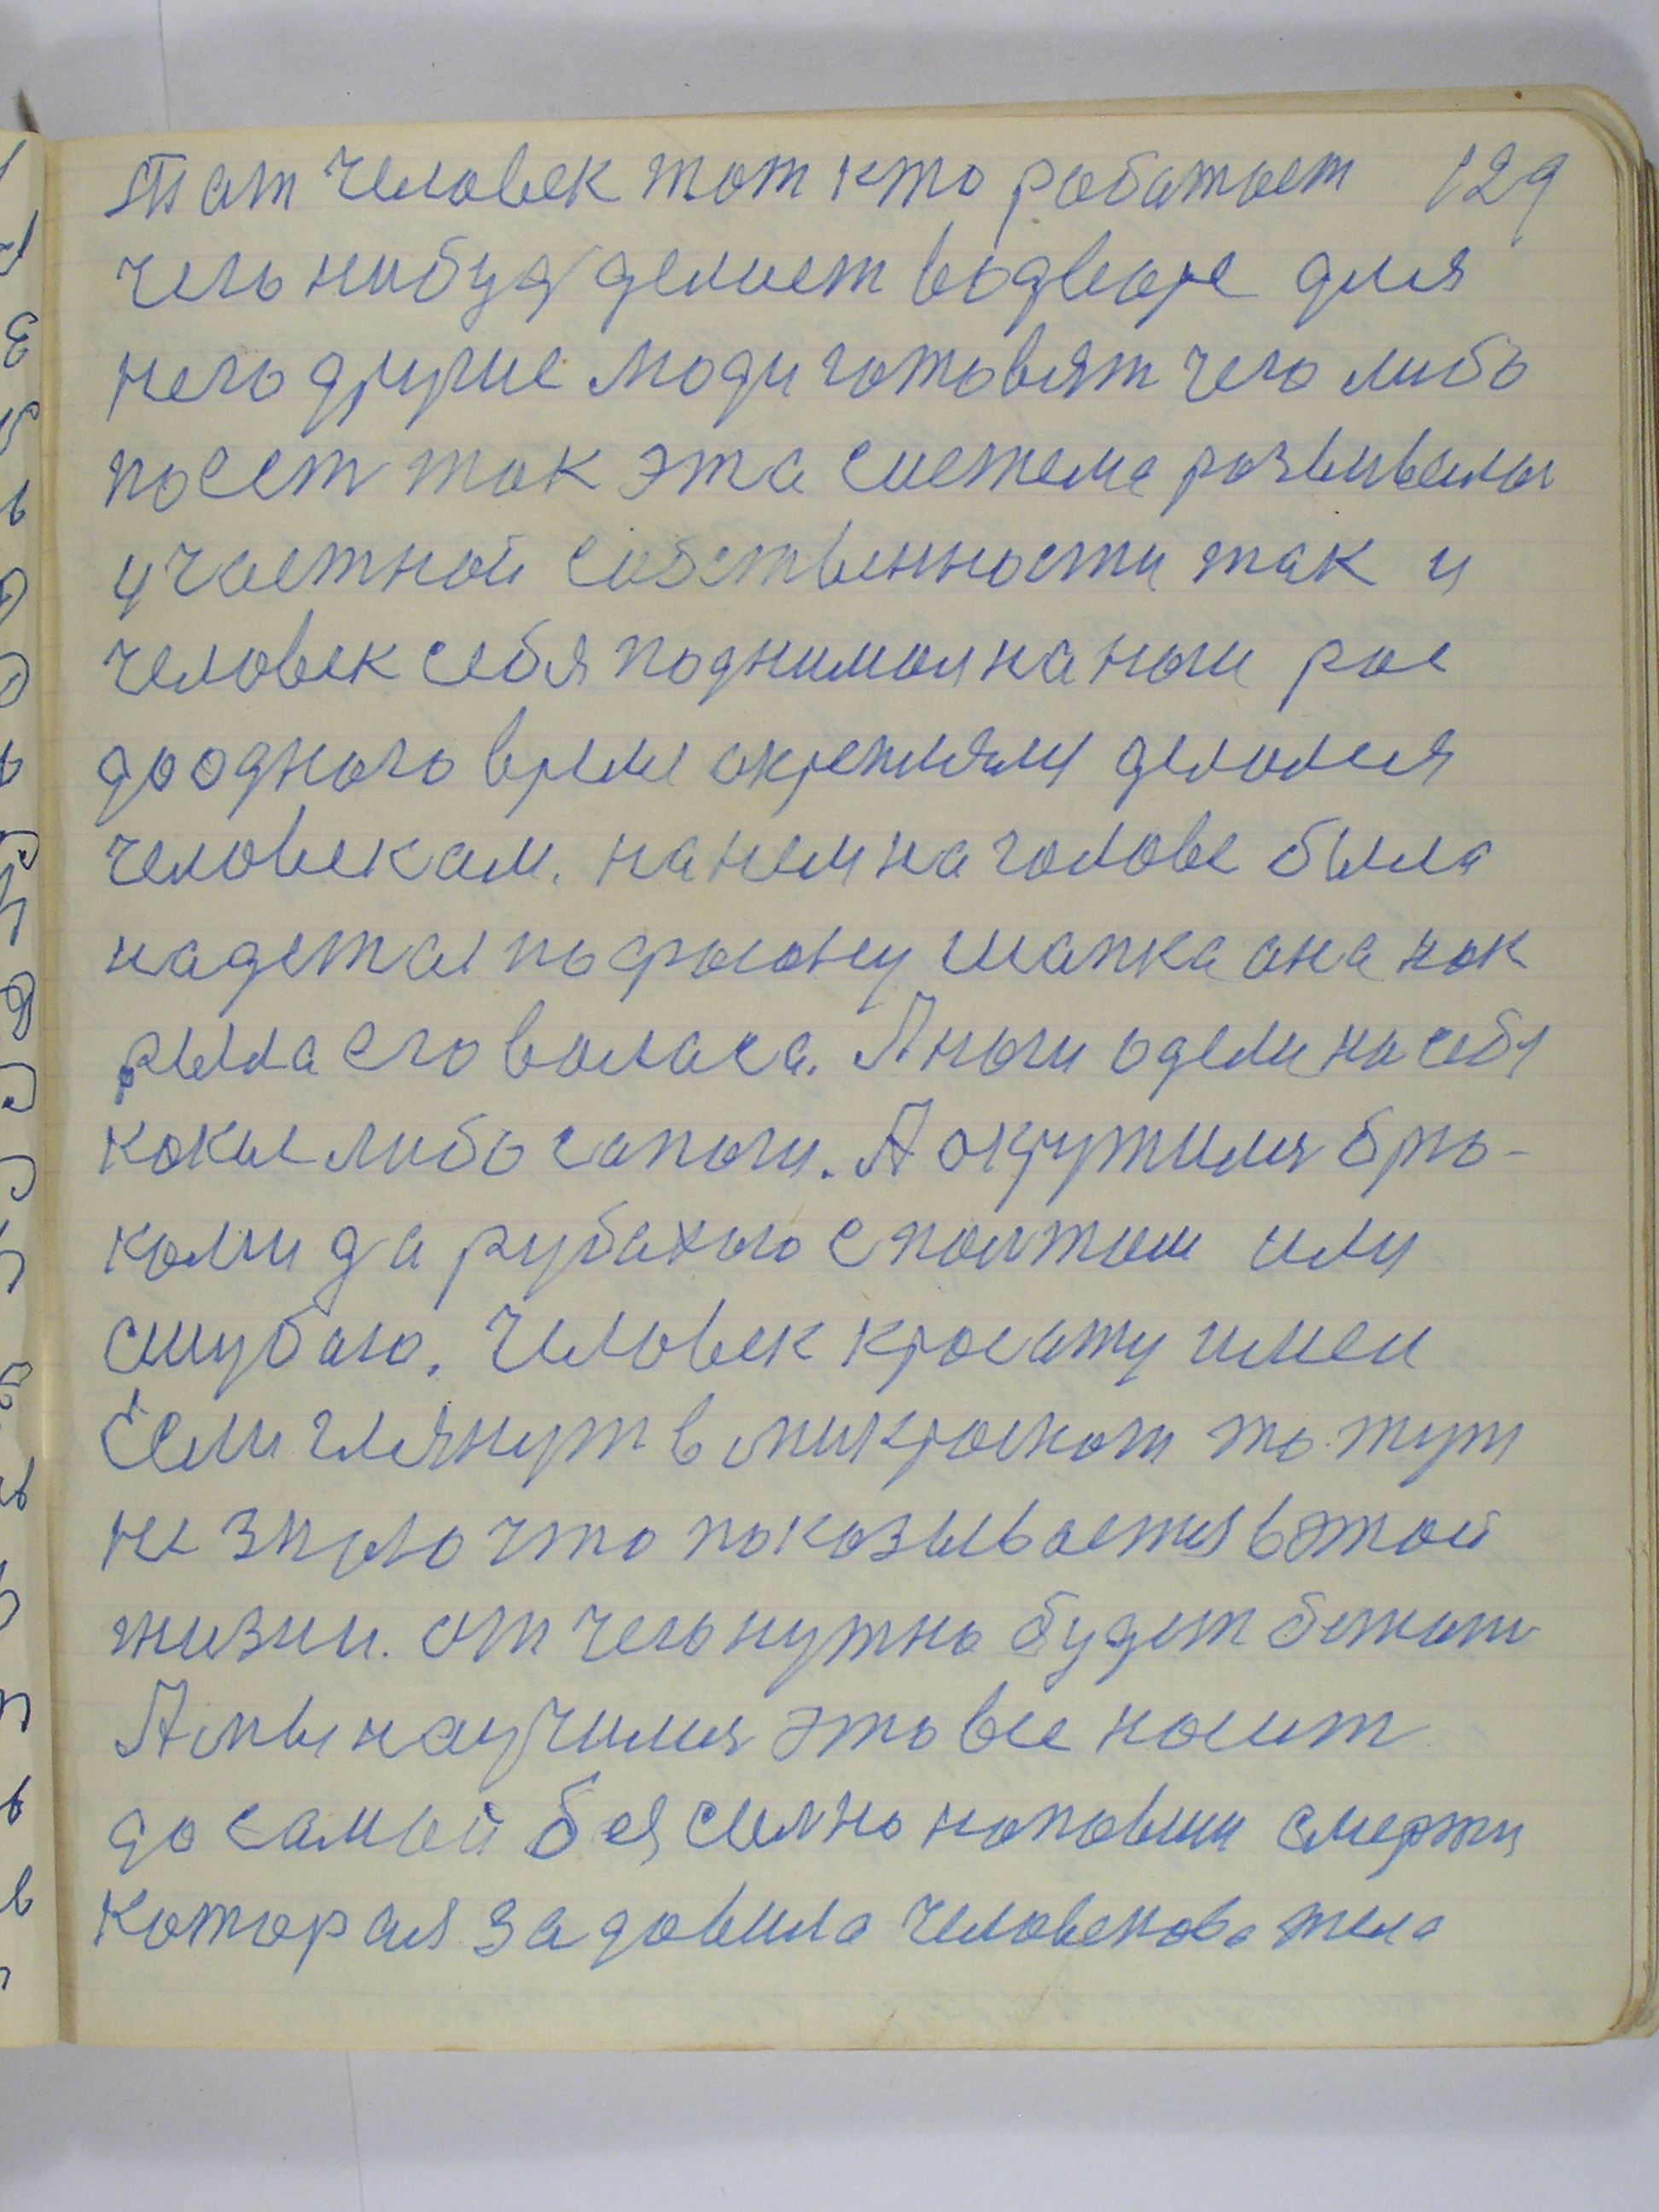 Тат человек тот кто работает 129
чего нибуд делает водворе для
него другие люди готовят чего либо
поест так эта система развивалас
у частной собственности так и
человек себя поднимал на ноги рос
до одного время окреплял делался
человекам. на нем на голове была
надетая по фасону шапка она пок
рыла его воласа. А ноги одели на себя
какие либо сапоги. А окрутился брю-
ками да рубахою с полтом или
с шубою. Человек красату имел
Если глянут в микроскоп то тут
не знаю что показывается в этой
жизни. от чего нужно будет бежать
А мы научился это все носит
до самой без силно напавши смерти
которая задавила человекова тела